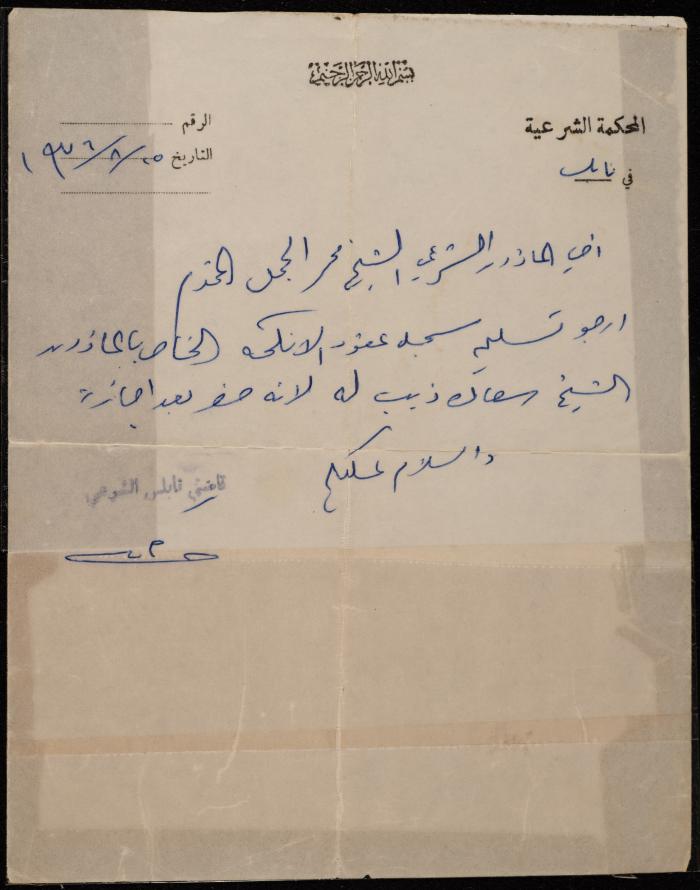 بسم الله الرحمن الرحيم
المحكمة الشرعية
في نابلس
الرقم
التاريخ ٢٥/٨/١٩٧٦
اخي الماذون الشرعي الشيخ محمد الجمل المحترم
ارجو تسليم سجل عقود الانكحه الخاص بالماذون
الشيخ سعادة ذيب له لانه حضر بعد اجازة
والسلام عليكم
قاضي نابلس الشرعي